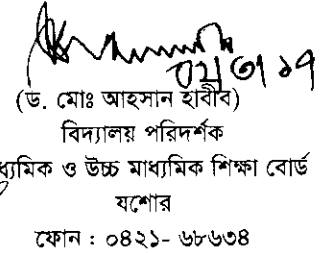 (ড. মোঃ আহসান হাবীব)
বিদ্যালয় পরিদর্শক
ধ্যমিক ও উচ্চ মাধ্যমিক শিক্ষা বোর্ড
যশোর
ফোন : ০৪২১- ৬৮৬৩৪